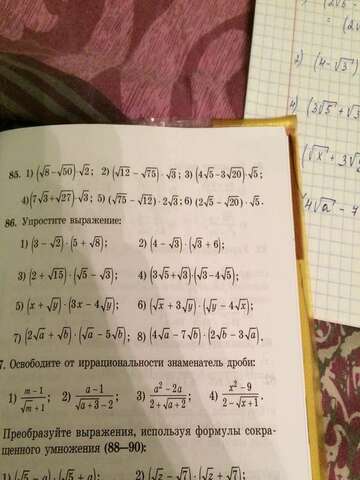 85. 1) (√8−√50)√2; 2) (√12−√75)·√3; 3) (4√5−3√20)√5;
4)(7√3+√27)·√3; 5) (√75−√12)·2√3; 6) (2√5−√20)·√5.
86. Упростите выражение:
1) (3−√2)·(5+√8); 2) (4−√3)·(√3+6);
3) (2+√15)·(√5−√3); 4) (3√5+√3)·(√3−4√5);
5) (x+√y)·(3x−4√y); 6) (√x+3√y)·(√y−4√x);
7) (2√a+√b)·(√a−5√b); 8) (4√a−7√b)·(2√b−3√a).
7. Освободите от иррациональности знаменатель дроби:
1) (m−1)/(√m+1); 2) (a−1)/(√a+3−2); 3) (a²−2a)/(2+√a+2); 4) (x²−9)/(2−√x+1).
Преобразуйте выражения, используя формулы сокра-
щенного умножения (88—90):
1) (√5−a)(√5+a); 2) (√z−√7)·(√z+√7);
(2√5
= (2√
(4−√3)
4) (3√5+√3
(√x+3√
4√a −